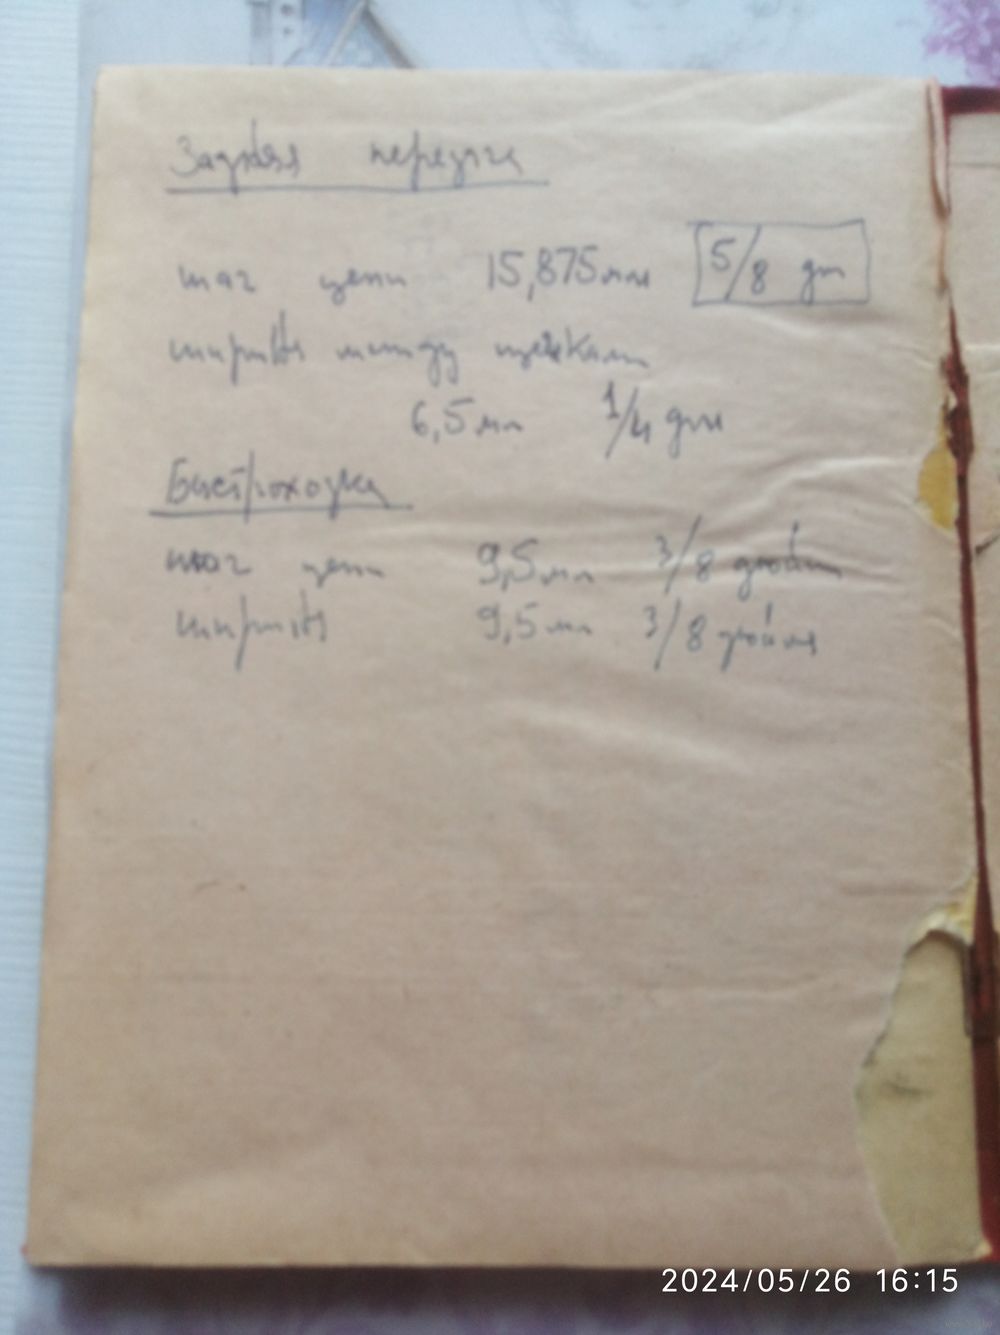 Задняя передача
шаг цепи 15,875мм 5/8 дм
ширина между щёками
6,5мм 1/4 дм
Быстроходка
шаг цепи 9,5мм 3/8 дюйм
ширина 9,5мм 3/8 дюйма
2024/05/26 16:15